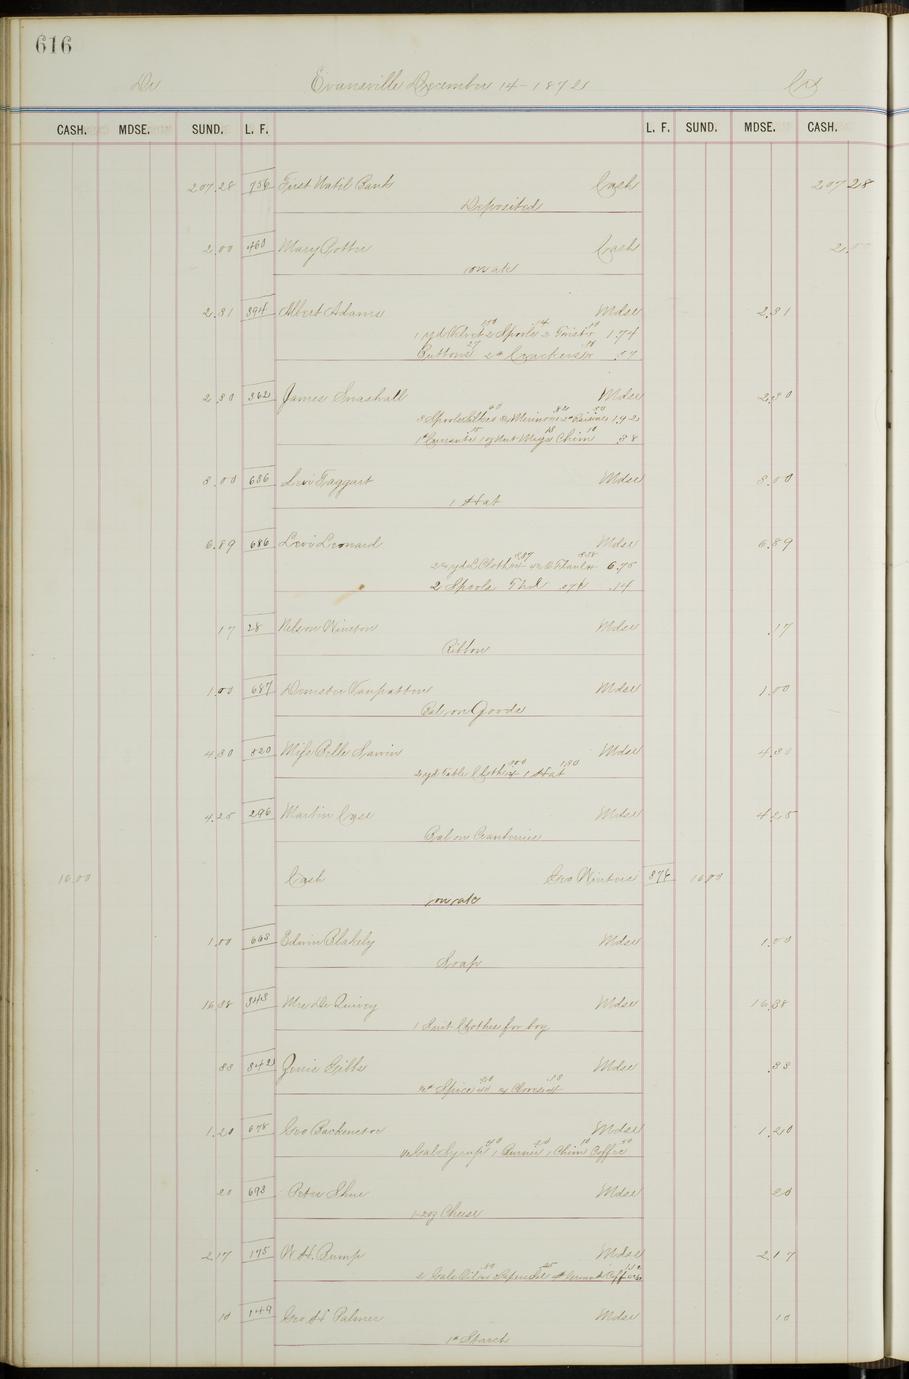 616
Dr Evansville December 14 - 1872 Cr
CASH. MDSE. SUND. L. F. L. F. SUND. MDSE. CASH.
207.28 756 First Natnl Bank Cash 207 28
Deposited
2.00 460 Mary Cash 2.00
on a/c
2.31 394 Albert Adams Mdse 2.31
1 yd Velvet 2 Spools 2 Twist 1.74
Buttons 27 Crackers .57
2.30 362 James Snashall Mdse 2.30
3 Spools Merino Raisins 1.92
1# Currants 1 oz Nut Megs Chim .38
3.00 686 Levi Taggart Mdse 3.00
1 Hat
6.89 686 Levi Leonard Mdse 6.89
yd Cloth 6.75
2 Spools Thd .07¢ .14
17 28 Nelson Winston Mdse .17
Ribbon
1.00 687 Vanpatten Mdse 1.00
Bal on Goods
4.30 320 Wife Belle Mdse 4.30
2 yd Table Cloth 1 Hat
4.25 296 Martin Case Mdse 4.25
Bal on Cranberries
16.00 Cash Geo 876 16.00
on a/c
1.00 663 Edwin Blakely Mdse 1.00
Soap
16.38 343 Mrs Quivey Mdse 16.38
1 Suit Clothes for boy
33 342 Gibbs Mdse .33
Spice
1.20 678 Geo Backenstoe Mdse 1.20
Gal Syrup 1 Burner 1 Chim Coffee
20 693 Peter Mdse 20
Cheese
2.17 175 W H. Bump Mdse 2.17
2 Gals Oil Coffee
10 149 Geo H Palmer Mdse 10
1# Starch